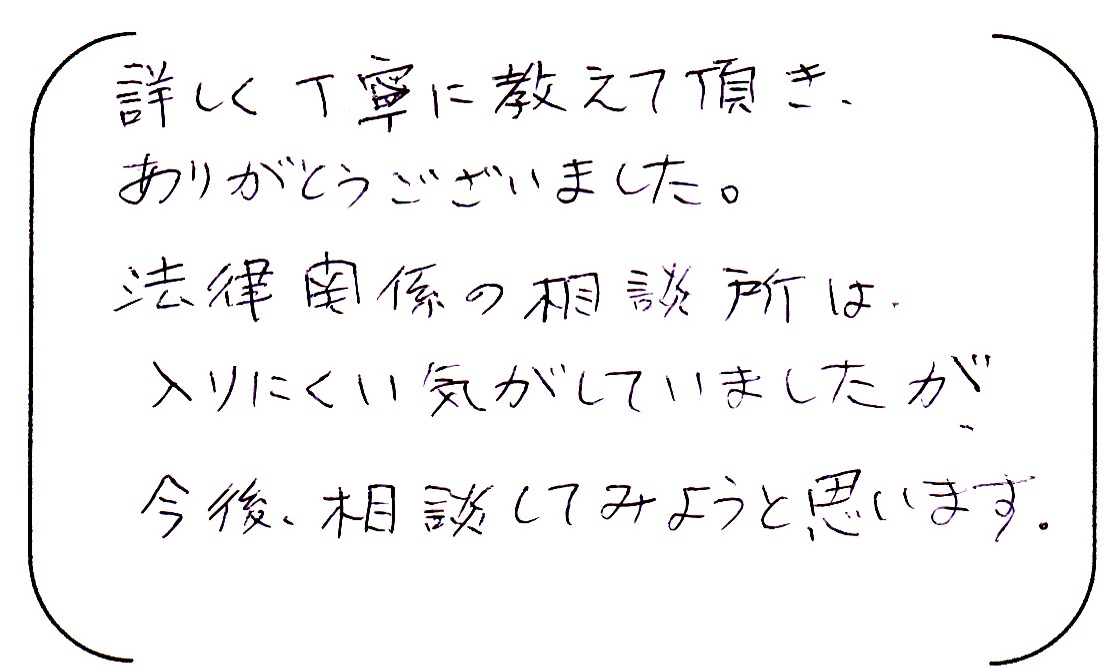 詳しく丁寧に教えて頂き、
ありがとうございました。
法律関係の相談所は、
入りにくい気がしていましたが、
今後、相談してみようと思います。